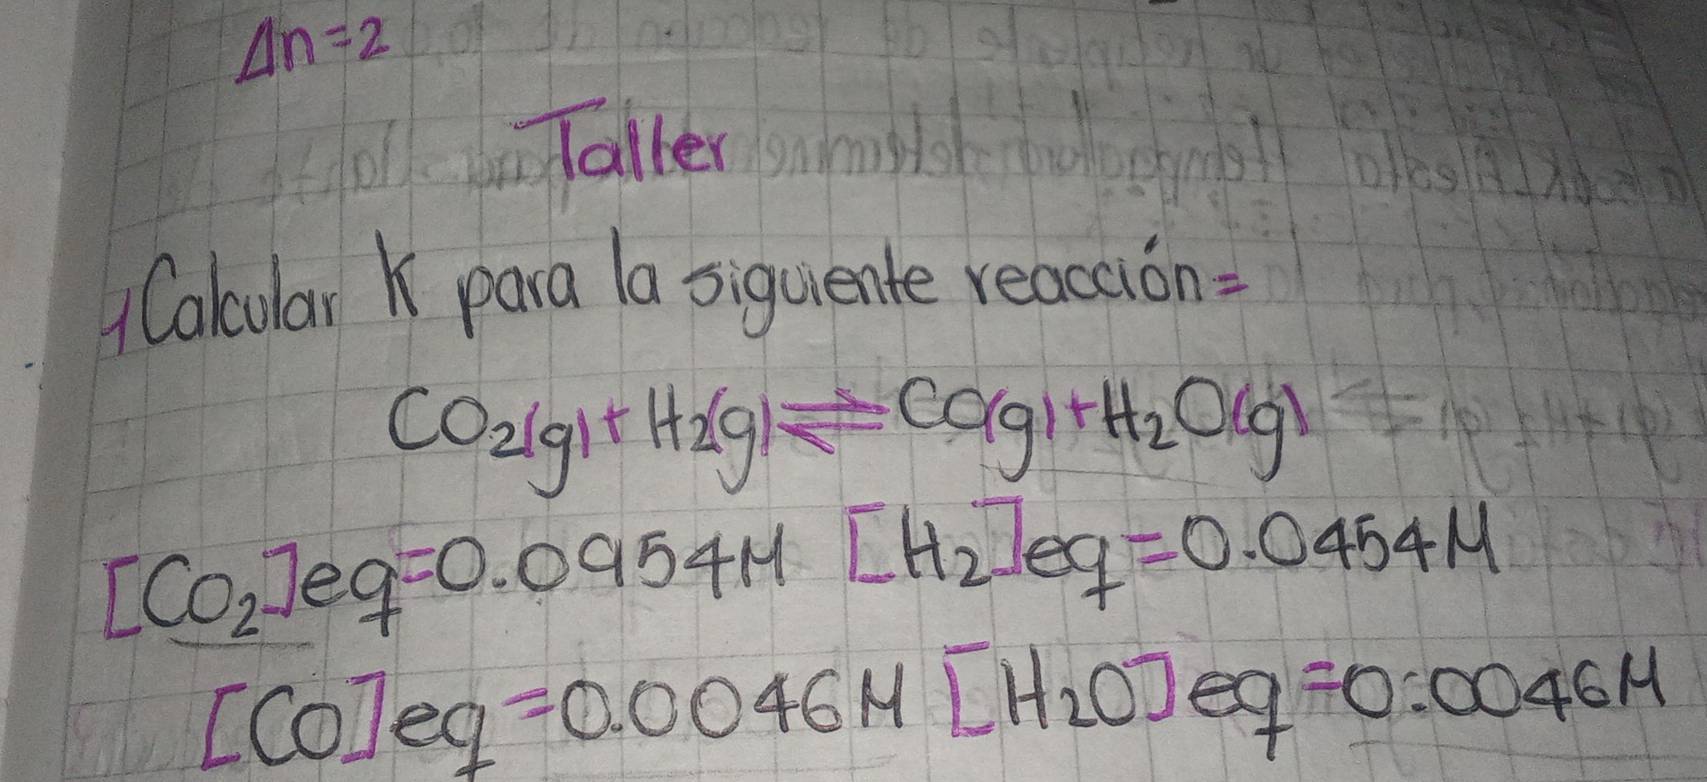 Δn=2
Taller
1 Calcular K para la siguiente reacción=
CO2(g)+H2(g)⇌CO(g)+H2O(g)
[CO2]eq=0.0954M [H2]eq=0.0454M
[CO]eq=0.0046M [H2O]eq=0.0046M